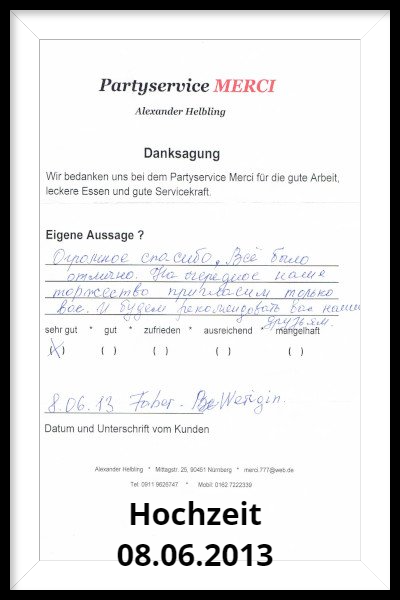 Partyservice MERCI
Alexander Helbling
Danksagung
Wir bedanken uns bei dem Partyservice Merci für die gute Arbeit,
leckere Essen und gute Servicekraft.
Eigene Aussage ?
Огромное спасибо, Всё было
отлично. На очередное наше
торжество пригласим только
вас. И будем рекомендовать вас нашим
друзьям.
sehr gut * gut * zufrieden * ausreichend * mangelhaft
(X) ( ) ( ) ( ) ( )
8.06.13 Faber - Werigin.
Datum und Unterschrift vom Kunden
Alexander Helbling * Mittagstr. 25, 90451 Nürnberg * merci.777@web.de
Tel: 0911 9626747 * Mobil: 0162 7222339
Hochzeit
08.06.2013